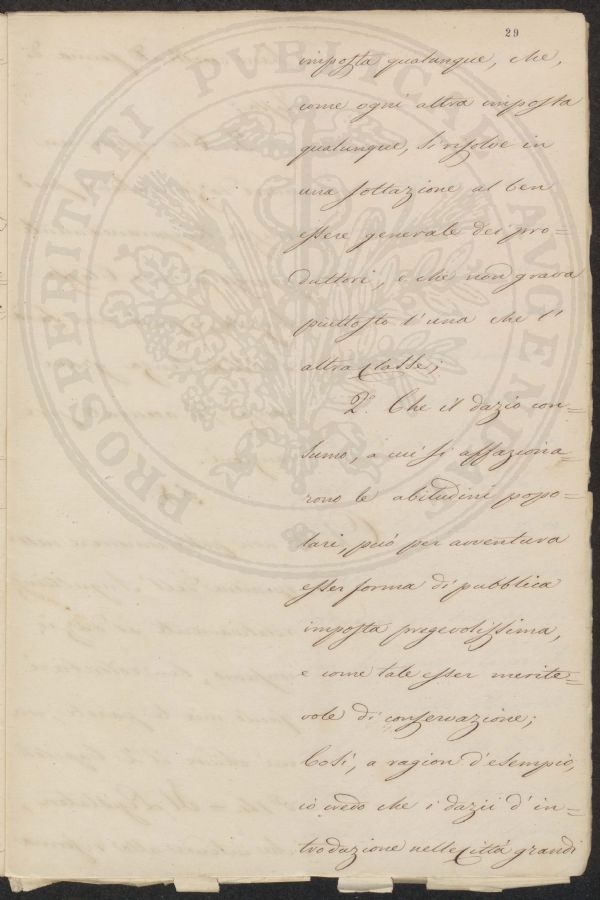 29
PROSPERITATI PUBLICAE AUGENDAE
imposta qualunque, che,
come ogni altra imposta
qualunque, si risolve in
una sottrazione al ben
essere generale dei pro=
duttori, e che non grava
piuttosto l'una che l'
altra classe;
2.° Che il dazio con=
sumo, a cui si affaziona=
rono le abitudini popo=
lari, può per avventura
esser forma di pubblica
imposta pregevolissima,
e come tale esser merite=
vole di conservazione;
Così, a ragion d'esempio,
io credo che i dazii d'in=
troduzione nelle Città grandi